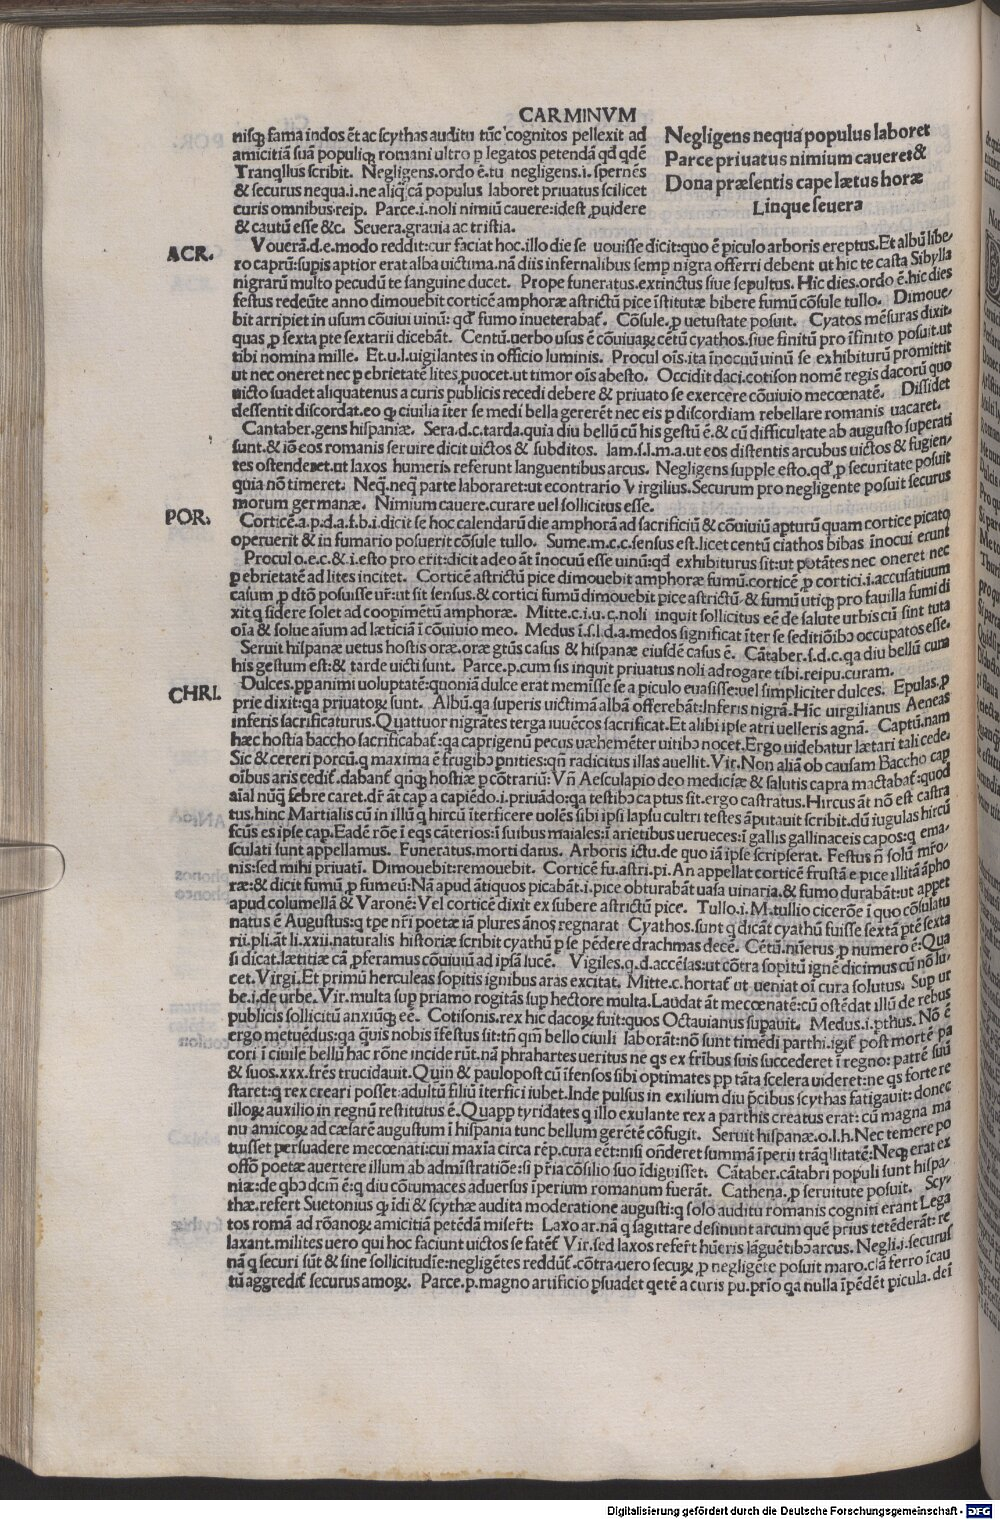 CARMINVM
nisq; fama indos ēt ac scythas auditu tūc cognitos pellexit ad
amicitiā suā populiq; romani ultro p legatos petendā qd qdē
Tranqllus scribit. Negligens.ordo ē.tu negligens.i.spernēs
& securus nequa.i.ne aliq cā populus laboret priuatus scilicet
curis omnibus reip. Parce.i.noli nimiū cauere:idest puidere
& cautū esse &c. Seuera.grauia ac tristia.
Negligens nequa populus laboret
Parce priuatus nimium cauere:&
Dona præsentis cape lætus horæ
Linque seuera
ACR.
Vouerā.d.e.modo reddit:cur faciat hoc.illo die se uouisse dicit:quo ē piculo arboris ereptus.Et albū libe-
ro caprū:supis aptior erat alba uictima.nā diis infernalibus semp nigra offerri debent ut hic te casta Sibylla
nigrarū multo pecudū te sanguine ducet. Prope funeratus.extinctus siue sepultus. Hic dies.ordo ē.hic dies
festus redeūte anno dimouebit corticē amphoræ astrictū pice īstitutæ bibere fumū cōsule tullo. Dimoue-
bit arripiet in usum cōuiui uinū: qd fumo inueterabat̄. Cōsule.p uetustate posuit. Cyatos mēsuras dixit.
quas p sexta pte sextarii dicebāt. Centū.uerbo usus ē cōuiuaꝝ cētū cyathos.siue finitū pro īfinito posuit.ut
tibi nomina mille. Et.u.l.uigilantes in officio luminis. Procul oīs.ita īnocuū uinū se exhibiturū promittit
ut nec oneret nec p ebrietatē lites puocet.ut timor oīs absto. Occidit daci.cotison nomē regis dacorū quo
uicto suadet aliquatenus a curis publicis recedi debere & priuato se exercere cōuiuio mecœnatē. Dissidet
dessentit discordat.eo q; ciuilia īter se medi bella gererēt nec eis p discordiam rebellare romanis uacaret.
Cantaber.gens hispaniæ. Sera.d.c.tarda.quia diu bellū cū his gestū ē.& cū difficultate ab augusto superati
sunt.& iō eos romanis seruire dicit uictos & subditos. Iam.s.l.m.a.ut eos distentis arcubus uictos & fugien-
tes ostenderet.ut laxos humeris referunt languentibus arcus. Negligens supple esto.qd p securitate posuit
quia nō timeret. Neq.neq parte laboraret:ut econtrario Virgilius.Securum pro negligente posuit securus
morum germanæ. Nimium cauere.curare uel sollicitus esse.
POR.
Corticē.a.p.d.a.f.b.i.dicit se hoc calendarū die amphorā ad sacrificiū & cōuiuiū apturū quam cortice picato
operuerit & in fumario posuerit cōsule tullo. Sume.m.c.c.sensus est.licet centū ciathos bibas īnocui erunt
Procul o.e.c.& i.esto pro erit:dicit adeo āt īnocuū esse uinū:qd exhibiturus sit:ut potātes nec oneret nec
p ebrietatē ad lites incitet. Corticē astrictū pice dimouebit amphoræ fumū.corticē p cortici.i.accusatiuum
casum p dtō posuisse ur̄:ut sit sensus.& cortici fumū dimouebit pice astrictū & fumū utiq; pro fauilla fumi di
xit q sidere solet ad coopimētū amphoræ. Mitte.c.i.u.c.noli inquit sollicitus eē de salute urbis cū sint tuta
oīa & solue aīum ad læticiā ī cōuiuio meo. Medus ī.s.l.d.a.medos significat īter se seditiōibꝰ occupatos esse.
Seruit hispanæ uetus hostis oræ.oræ gtūs casus & hispanæ eiusdē casus ē. Cātaber.s.d.c.qa diu bellū cum
his gestum est:& tarde uicti sunt. Parce.p.cum sis inquit priuatus noli adrogare tibi.reipu.curam.
CHRI.
Dulces.pp animi uoluptatē:quoniā dulce erat memisse se a piculo euasisse:uel simpliciter dulces. Epulas.p
prie dixit:qa priuatoꝝ sunt. Albū.qa superis uictimā albā offerebāt:Inferis nigrā.Hic uirgilianus Aeneas
inferis sacrificaturus.Quattuor nigrātes terga iuuēcos sacrificat.Et alibi ipse atri uelleris agnā. Captū.nam
hæc hostia baccho sacrificabat̄:qa caprigenū pecus uæhemēter uitibꝰ nocet.Ergo uidebatur lætari tali cede.
Sic & cereri porcū.q maxima ē frugibꝰ pnities:qn̄ radicitus illas auellit. Vir.Non aliā ob causam Baccho cap
oībus aris cedit̄.dabant̄ qn̄q; hostiæ p cōtrariū: Vn̄ Aesculapio deo mediciæ & salutis capra mactabat̄:quod
aīal nūq̄ febre caret.dr̄ āt cap a capiēdo.i.priuādo:qa testibꝰ captus sit.ergo castratus.Hircus āt nō est castra
tus.hinc Martialis cū in illū q hircū īterficere uolēs sibi ipsi lapsu cultri testes āputauit scribit.dū iugulas hircū
fcūs es ipse cap.Eadē rōe ī eqs cāterios:ī suibus maiales:ī arietibus uerueces:ī gallis gallinaceis capos:q ema-
sculati sunt appellamus. Funeratus.morti datus. Arboris ictu.de quo iā ipse scripserat. Festus n̄ solū mr̄o-
nis:sed mihi priuati. Dimouebit:remouebit. Corticē fu.astri.pi.An appellat corticē frustā e pice illitā apho
ræ:& dicit fumū p fumeū:Nā apud ātiquos picabāt.i.pice obturabāt uasa uinaria.& fumo durabāt:ut appet
apud columellā & Varonē:Vel corticē dixit ex subere astrictū pice. Tullo.i.M.tullio cicerōe ī quo cōsulatu
natus ē Augustus:q tpe nr̄i poetæ iā plures ānos regnarat Cyathos.sunt q dicāt cyathū fuisse sextā ptē sexta
rii.pli.āt li.xxii.naturalis historiæ scribit cyathū p se pēdere drachmas decē. Cētū.nūerus p numero ē:Qua
si dicat.lætitiæ cā pferamus cōuiuiū ad ipsā lucē. Vigiles.q.d.accēsas:ut cōtra sopitū ignē dicimus cū nō lu-
cet.Virgi.Et primū herculeas sopitis ignibus aras excitat. Mitte.c.hortat̄ ut ueniat oī cura solutus. Sup ur
be.i.de urbe.Vir.multa sup priamo rogitās sup hectore multa.Laudat āt mecœnatē:cū ostēdat illū de rebus
publicis sollicitū anxiūq; eē. Cotisonis.rex hic dacoꝝ fuit:quos Octauianus supauit. Medus.i.pthus. Nō ē
ergo metuēdus:qa q̄uis nobis īfestus sit:tn̄ qm̄ bello ciuili laborāt:nō sunt timēdi parthi.igit̄ post mortē pa
cori ī ciuile bellū hac rōne inciderūt.nā phrahartes ueritus ne qs ex frībus suis succederet ī regno: patrē suū
& suos.xxx.frēs trucidauit.Quin & paulopost cū īfensos sibi optimates pp tāta scelera uideret:ne qs forte re
staret:q rex creari posset:adultū filiū īterfici iubet.Inde pulsus in exilium diu p̄cibus scythas fatigauit: donec
illoꝝ auxilio in regnū restitutus ē.Quapp tyridates q illo exulante rex a parthis creatus erat: cū magna ma
nu amicoꝝ ad cæsarē augustum ī hispania tunc bellum gerētē cōfugit. Seruit hispanæ.o.l.h.Nec temere po
tuisset persuadere mecœnati:cui maxīa circa rēp.cura eēt:nisi on̄deret summā īperii trāq̄llitatē:Neq; erat ex
offō poetæ auertere illum ab admīstratiōe:si p̄ria cōsilio suo īdiguisset. Cātaber.cātabri populi sunt hispa-
niæ:de qbꝰ dcm̄ ē:q diu cōtumaces aduersus īperium romanum fuerāt. Cathena.p seruitute posuit. Scy-
thæ.refert Suetonius q; īdi & scythæ audita moderatione augusti:q solo auditu romanis cogniti erant Lega
tos romā ad rōanoꝝ amicitiā petēdā misert̄: Laxo ar.nā q sagittare desinunt arcum quē prius tetēderāt: re
laxant.milites uero qui hoc faciunt uictos se fatēt̄ Vir.sed laxos refert̄ hūeris lāguētibꝰ arcus. Negli.i.securus
nā q securi sūt & sine sollicitudīe:negligētes reddūt̄.cōtra uero secuꝝ p negligēte posuit maro.clā ferro īcau
tū aggredit̄ securus amoꝝ. Parce.p.magno artificio psuadet qetē a curis pu.prīo qa nulla īpēdēt picula.deī
Digitalisierung gefördert durch die Deutsche Forschungsgemeinschaft - DFG